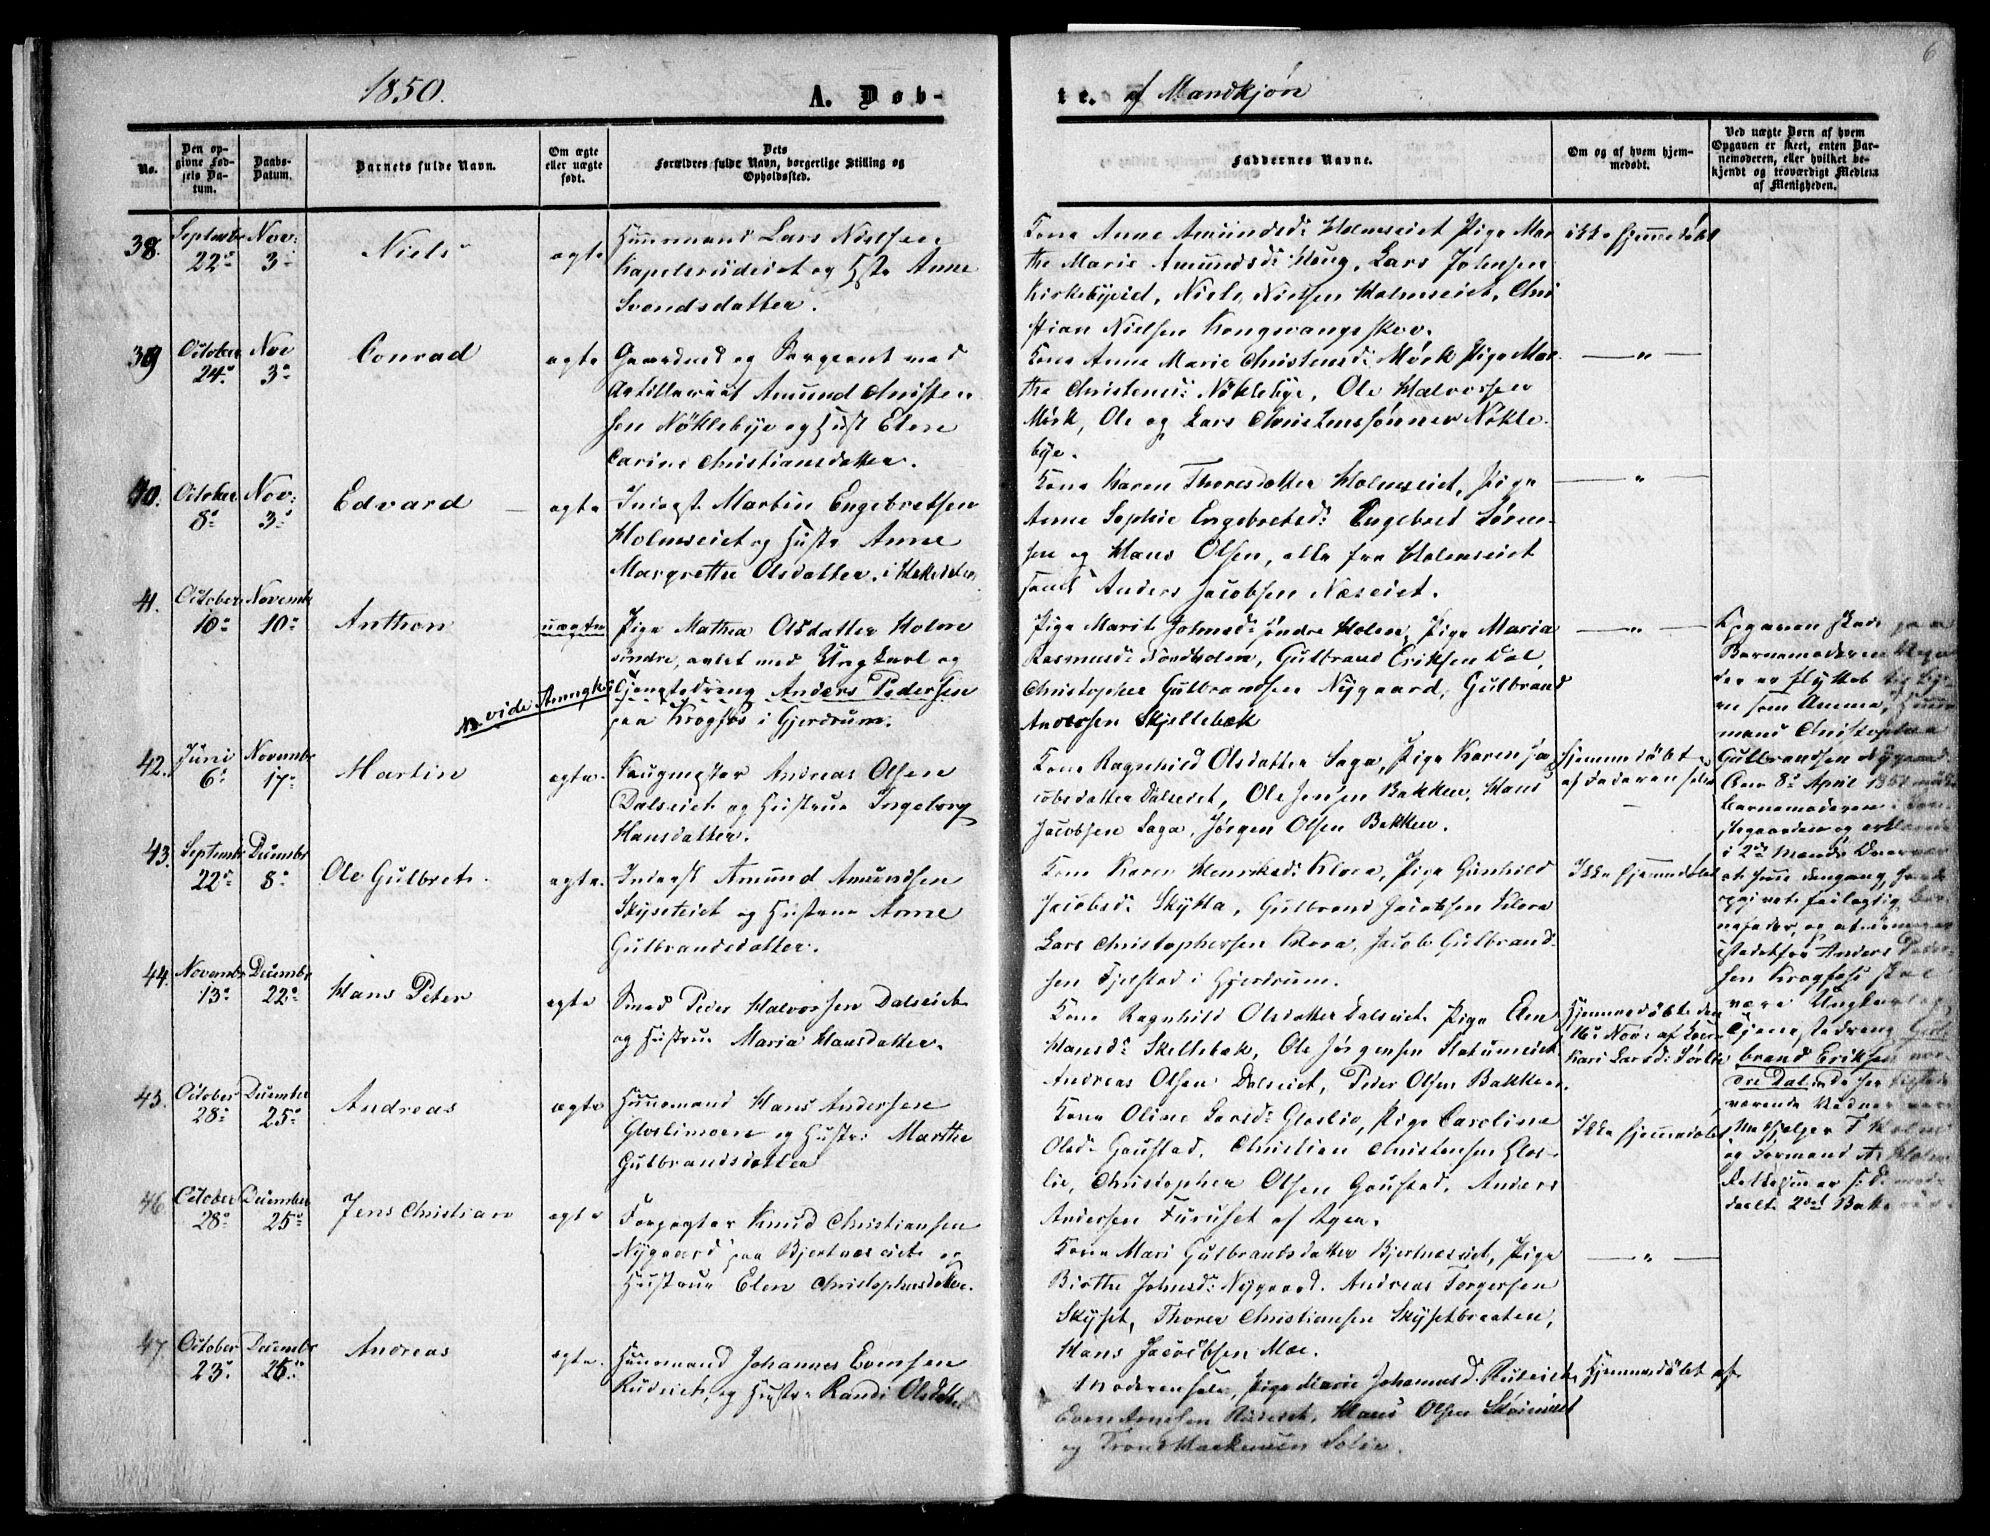 6
1850.
A. Døb-
te. af Mandkjøn
No.
Den op-
givne Fød-
sels Da-
tum.
Daabs-
Datum.
Barnets fulde Navn.
Om ægte
eller uægte
født.
Dets
Forældres fulde Navn, borgerlige Stilling og
Opholdssted.
Faddernes Navne.
Om og af hvem hjem-
medøbt.
Ved uægte Børn af hvem
Opgaven er skeet, enten Bar-
nemoderen, eller hvilket be-
kjendt og troværdigt Medlem
af Menigheden.
38. Septembr 22de Nov: 3die Niels ægte
Huusmand Lars Nielsen
og Hstr Anne
Svendsdatter.
Kone Anne Amundsd: Holmseiet Pige Mar-
the Marie Amundsd: Haug, Lars Johnsen
Kirkebyeiet, Niels Nielsen Holmseiet, Chri
stian Nielsen Kongsvangsskov.
ikke hjemmedøbt
39 October 24. Nov 3. Conrad ægte
Gaardmd og Sergeant ved
Artilleriet Amund Christen
sen Nøklebye og Hust Elen
Carine Christiansdatter.
Kone Anne Marie Christensd: Mörk Pige Mar-
the Christensd: Nöklebye, Ole Halvorsen
Mörk, Ole og Lars Christenssönner Nökle-
bye.
— " —
40. October 8. Nov: 3. Edvard ægte
Inderst Martin Engebretsen
Holmseiet og Hustr Anne
Margrethe Olsdatter.
Kone Karen Thoresdatter Holmseiet, Pige
Anne Sophie Engebretsd: Engebret Sören-
sen og Hans Olsen, alle fra Holmseiet
samt Anders Jacobsen Næseiet.
— " —
41. October 10. Novembr 10. Anthon uægte
Pige Mathea Olsdatter Holm
söndre, avlet med Ungkarl og
Tjenestedreng Anders Pedersen
paa Krogfos i Gjerdrum.
NB vide Anmgk:
Pige Marit Johnsd: söndre Holm, Pige Maria
Rasmusd: Nordholm, Gulbrand Eriksen Dal,
Christopher Gulbrandsen Nygaard, Gulbrand
Andersen Skjellebæk
— " —
Opgaven skede paa
Barnemoderen
der er flyttet til By-
en som Amme,
mand Christopher
Gulbrandsen Nygaard
Den 8de April 1851 mødte
Barnemoderen i Præ-
stegaarden og erklærede
i 2de Mænds Overvær
at hun dengang havde
opgivet feilagtig Bar-
nefader, og at denne
istedetfor Anders Peder-
sen Krogfoss skal
være Ungkarl og
Tjenestedreng Gul
brand Eriksen nor-
dre Dal. De
værende Vidner vare
Medhjelper T. Holm
og Formand A. Holm
42. Juni 6. Novembr 17. Martin ægte.
Andreas Olsen
Dalseiet og Hustrue Ingeborg
Hansdatter.
Kone Ragnhild Olsdatter Saga, Pige Karen Ja
cobsdatter Dalseiet, Ole Jensen Bakken, Hans
Jacobsen Saga, Jörgen Olsen Bakken.
hjemmedöbt
af Faderen selv
43. Septembr 22. Decembr 8. Ole Gulbret. ægte.
Inderst Amund Amundsen
Skyseteiet og Hustrue Anne
Gulbrandsdatter.
Kone Karen Henriksd: Klova, Pige Gunhild
Jacobsd: Skytta, Gulbrand Jacobsen Klova
Lars Christophersen Klova, Jacob Gulbrand-
sen Fjelstad i Gjerdrum.
Ikke hjemmedøbt
44. Novembr 13. Decembr 22. Hans Peter ægte
Smed Peder Halvorsen Dalseiet
og Hustrue Maria Hansdatter.
Kone Ragnhild Olsdatter Dalseiet Pige Elen
Hansd: Skellebæk, Ole Jörgensen Slatumeiet
Andreas Olsen Dalseiet, Peder Olsen Bakken.
Hjemmedöbt den
16: Nov: af
Kari Larsd: Sörlie
45. October 28. December 25. Andreas ægte
Huusmand Hans Andersen
Gloslimoen og Hustr: Marthe
Gulbrandsdatter
Kone Oline Larsd: Gloslie, Pige Caroline
Olsd: Goustad, Christian Christensen Glos-
lie, Christopher Olsen Goustad, Anders
Andersen Furuset af Ager.
Ikke hjemmedøbt
46. October 28. December 25. Jens Christian ægte
Forpagter Knud Christiansen
Nygaard paa Bjertnæseiet og
Hustrue Elen Christophersdatter.
Kone Mari Gulbrandsdatter Bjertnæseiet, Pige
Birthe Johnsd: Nygaard. Andreas Torgersen
Skyset, Thorer Christiansen Skysetbraaten,
Hans Jacobsen Moe.
— " —
47. October 23. Decembr 25. Andreas ægte.
Huusmand Johannes Evensen
Rudseiet, og Hustr: Randi Olsdatter
Moderen selv, Pige Marie Johannesd. Rudseiet
Even Arnesen Rudseiet, Hans Olsen
og Trond
Hjemmedöbt af